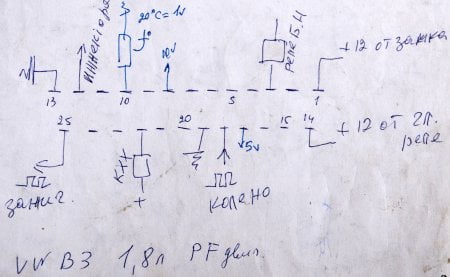 20°C=1v
t°
инжектора
10v
реле Б.Н
+12 от замка
13 10 5 1
25 20 15 14
+12 от гл.
реле
5v
XX
+
зажиг.
колено
VW B3 1,8л PF двиг.